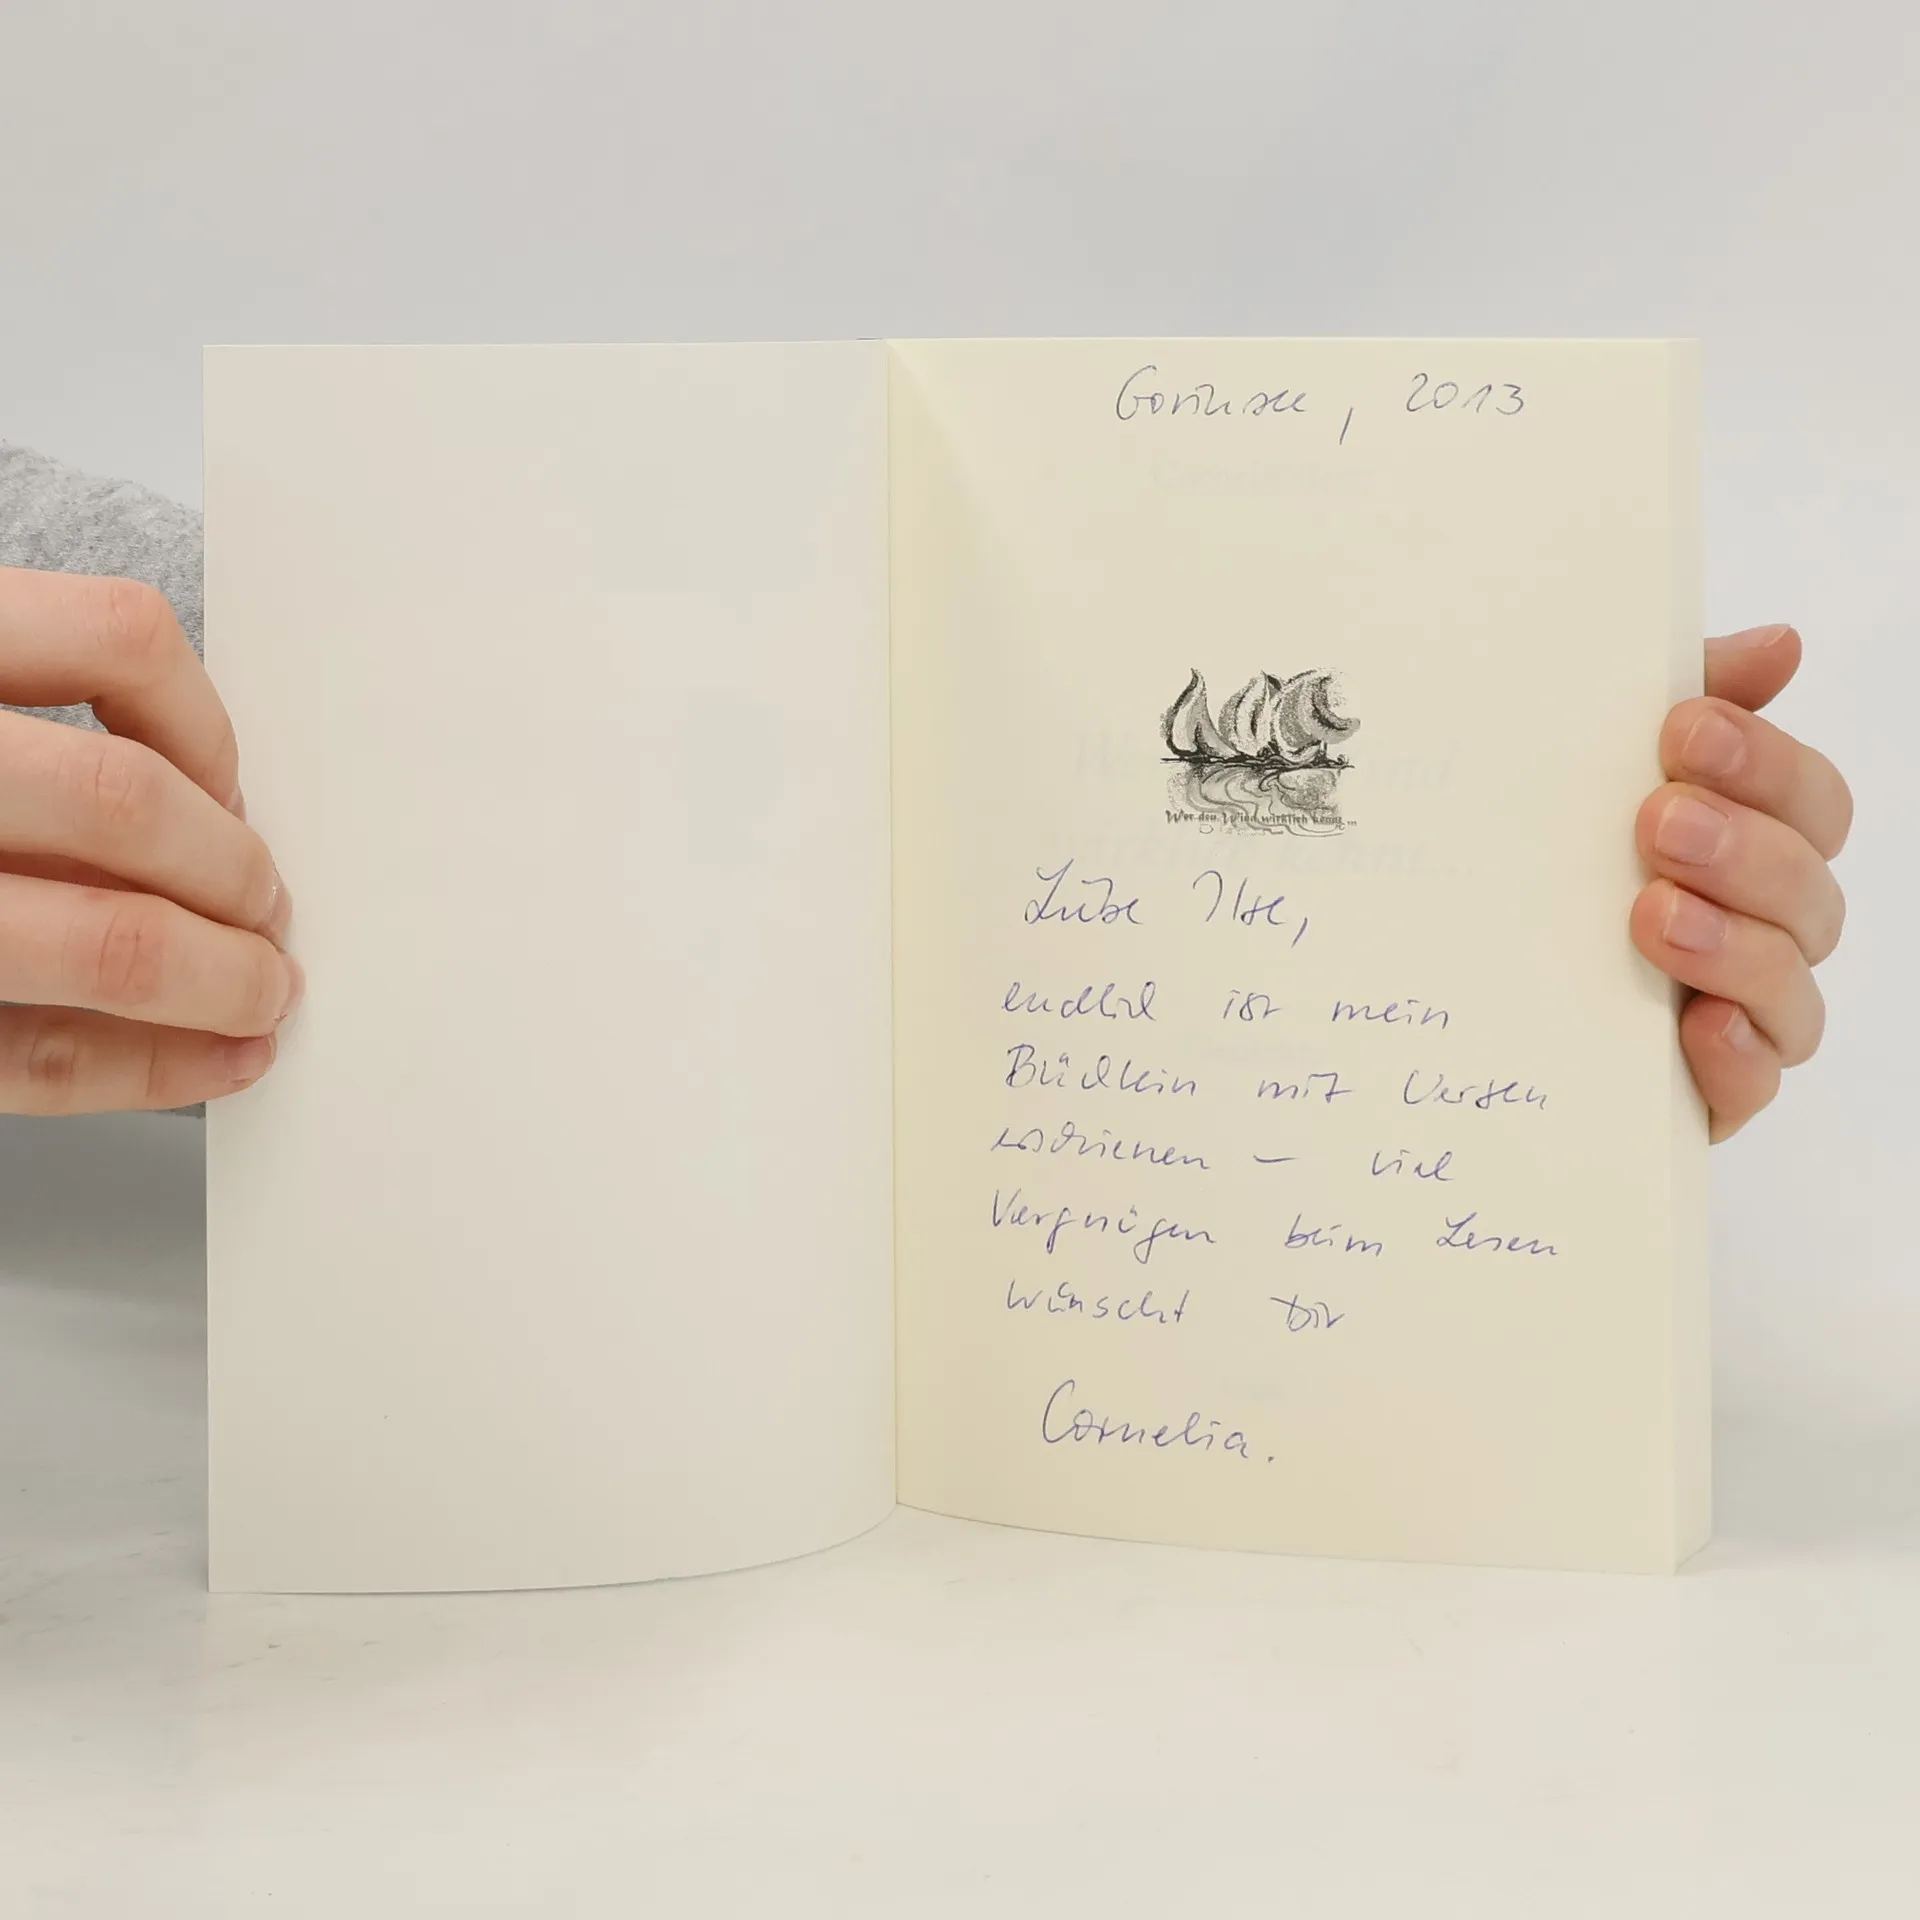 Gorinsee, 2013
Wer den Wind wirklich kennt...
Liebe Ilse,
endlich ist mein
Büchlein mit Versen
erschienen – viel
Vergnügen beim Lesen
wünscht Dir
Cornelia.